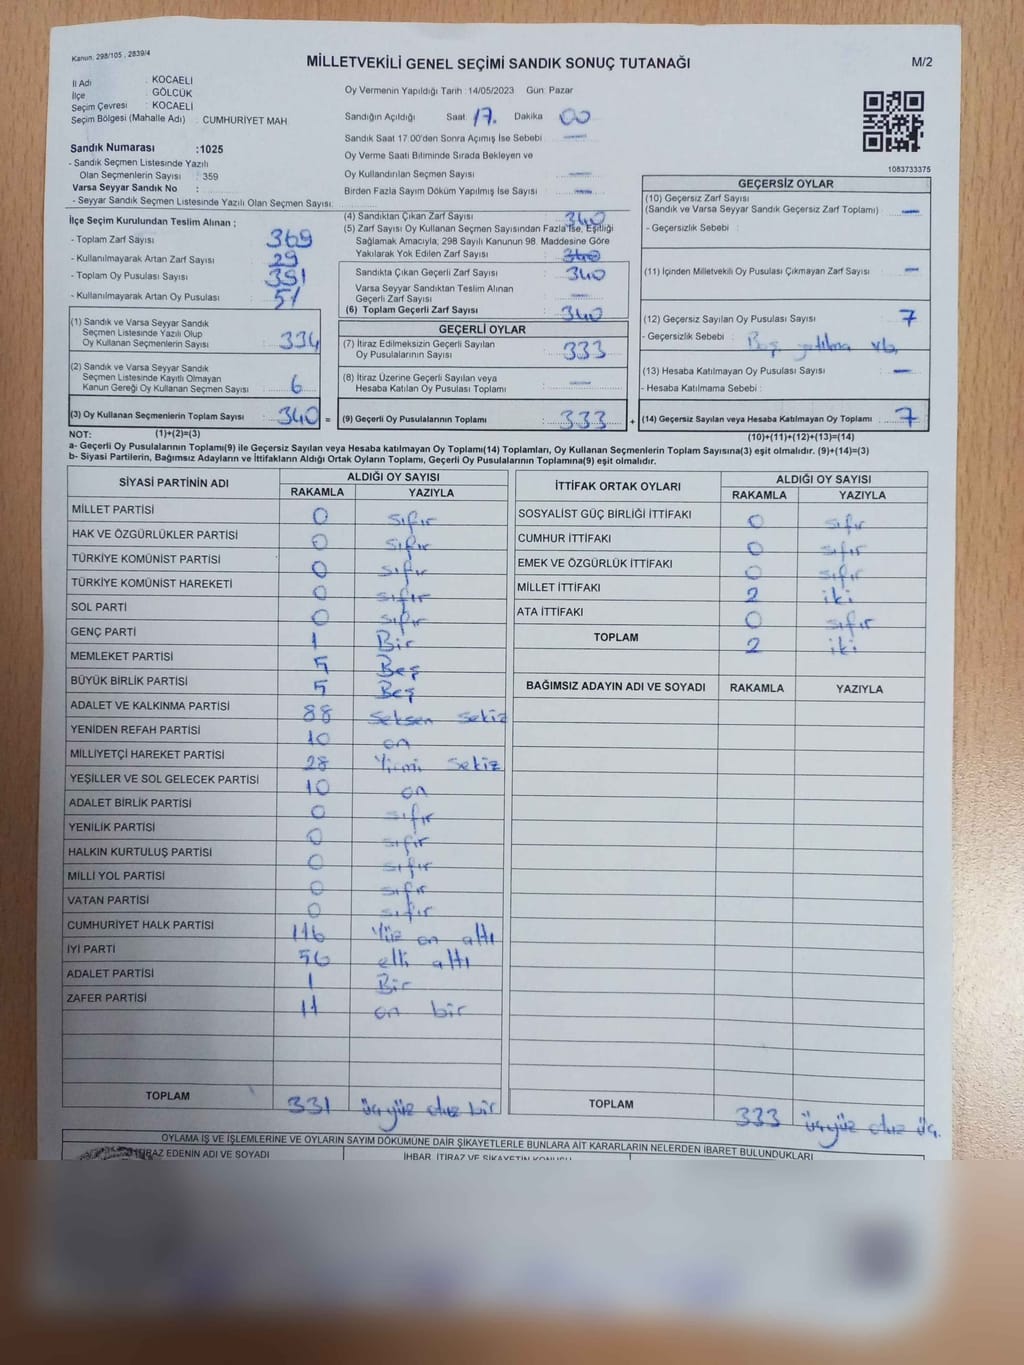 Kanun. 298/105 , 2839/4
MİLLETVEKİLİ GENEL SEÇİMİ SANDIK SONUÇ TUTANAĞI
M/2
İl Adı : KOCAELİ
İlçe : GÖLCÜK
Seçim Çevresi : KOCAELİ
Seçim Bölgesi (Mahalle Adı) : CUMHURİYET MAH.
Sandık Numarası :1025
- Sandık Seçmen Listesinde Yazılı
Olan Seçmenlerin Sayısı : 359
Varsa Seyyar Sandık No :
- Seyyar Sandık Seçmen Listesinde Yazılı Olan Seçmen Sayısı:
Oy Vermenin Yapıldığı Tarih :14/05/2023 Gün: Pazar
Sandığın Açıldığı Saat 17. Dakika 00
Sandık Saat 17:00'den Sonra Açımış İse Sebebi : —
Oy Verme Saati Bitiminde Sırada Bekleyen ve
Oy Kullandırılan Seçmen Sayısı : —
Birden Fazla Sayım Döküm Yapılmış İse Sayısı : —
1083733375
İlçe Seçim Kurulundan Teslim Alınan ;
- Toplam Zarf Sayısı : 369
- Kullanılmayarak Artan Zarf Sayısı : 29
- Toplam Oy Pusulası Sayısı : 391
- Kullanılmayarak Artan Oy Pusulası : 51
(1) Sandık ve Varsa Seyyar Sandık
Seçmen Listesinde Yazılı Olup
Oy Kullanan Seçmenlerin Sayısı : 334
(2) Sandık ve Varsa Seyyar Sandık
Seçmen Listesinde Kayıtlı Olmayan
Kanun Gereği Oy Kullanan Seçmen Sayısı : 6
(3) Oy Kullanan Seçmenlerin Toplam Sayısı : 340 =
(4) Sandıktan Çıkan Zarf Sayısı : 340
(5) Zarf Sayısı Oy Kullanan Seçmen Sayısından Fazla İse, Eşitliği
Sağlamak Amacıyla, 298 Sayılı Kanunun 98. Maddesine Göre
Yakılarak Yok Edilen Zarf Sayısı : 340
Sandıkta Çıkan Geçerli Zarf Sayısı : 340
Varsa Seyyar Sandıktan Teslim Alınan
Geçerli Zarf Sayısı : —
(6) Toplam Geçerli Zarf Sayısı : 340
GEÇERLİ OYLAR
(7) İtiraz Edilmeksizin Geçerli Sayılan
Oy Pusulalarının Sayısı : 333
(8) İtiraz Üzerine Geçerli Sayılan veya
Hesaba Katılan Oy Pusulası Toplamı : —
(9) Geçerli Oy Pusulalarının Toplamı : 333 +
GEÇERSİZ OYLAR
(10) Geçersiz Zarf Sayısı
(Sandık ve Varsa Seyyar Sandık Geçersiz Zarf Toplamı) : —
- Geçersizlik Sebebi :
(11) İçinden Milletvekili Oy Pusulası Çıkmayan Zarf Sayısı : —
(12) Geçersiz Sayılan Oy Pusulası Sayısı : 7
- Geçersizlik Sebebi : Boş, vb.
(13) Hesaba Katılmayan Oy Pusulası Sayısı : —
- Hesaba Katılmama Sebebi :
(14) Geçersiz Sayılan veya Hesaba Katılmayan Oy Toplamı : 7
NOT: (1)+(2)=(3)
(10)+(11)+(12)+(13)=(14)
a- Geçerli Oy Pusulalarının Toplamı(9) ile Geçersiz Sayılan veya Hesaba katılmayan Oy Toplamı(14) Toplamları, Oy Kullanan Seçmenlerin Toplam Sayısına(3) eşit olmalıdır. (9)+(14)=(3)
b- Siyasi Partilerin, Bağımsız Adayların ve İttifakların Aldığı Ortak Oyların Toplamı, Geçerli Oy Pusulalarının Toplamına(9) eşit olmalıdır.
SİYASİ PARTİNİN ADI ALDIĞI OY SAYISI
RAKAMLA YAZIYLA
MİLLET PARTİSİ 0 sıfır
HAK VE ÖZGÜRLÜKLER PARTİSİ 0 sıfır
TÜRKİYE KOMÜNİST PARTİSİ 0 sıfır
TÜRKİYE KOMÜNİST HAREKETİ 0 sıfır
SOL PARTİ 0 sıfır
GENÇ PARTİ 1 Bir
MEMLEKET PARTİSİ 5 Beş
BÜYÜK BİRLİK PARTİSİ 5 Beş
ADALET VE KALKINMA PARTİSİ 88 seksen sekiz
YENİDEN REFAH PARTİSİ 10 on
MİLLİYETÇİ HAREKET PARTİSİ 28 Yirmi sekiz
YEŞİLLER VE SOL GELECEK PARTİSİ 10 on
ADALET BİRLİK PARTİSİ 0 sıfır
YENİLİK PARTİSİ 0 sıfır
HALKIN KURTULUŞ PARTİSİ 0 sıfır
MİLLİ YOL PARTİSİ 0 sıfır
VATAN PARTİSİ 0 sıfır
CUMHURİYET HALK PARTİSİ 116 Yüz on altı
İYİ PARTİ 56 elli altı
ADALET PARTİSİ 1 Bir
ZAFER PARTİSİ 11 on bir
TOPLAM 331 üçyüz otuz bir
İTTİFAK ORTAK OYLARI ALDIĞI OY SAYISI
RAKAMLA YAZIYLA
SOSYALİST GÜÇ BİRLİĞİ İTTİFAKI 0 sıfır
CUMHUR İTTİFAKI 0 sıfır
EMEK VE ÖZGÜRLÜK İTTİFAKI 0 sıfır
MİLLET İTTİFAKI 2 iki
ATA İTTİFAKI 0 sıfır
TOPLAM 2 iki
BAĞIMSIZ ADAYIN ADI VE SOYADI RAKAMLA YAZIYLA
TOPLAM 333 üçyüz otuz üç.
OYLAMA İŞ VE İŞLEMLERİNE VE OYLARIN SAYIM DÖKÜMÜNE DAİR ŞİKAYETLERLE BUNLARA AİT KARARLARIN NELERDEN İBARET BULUNDUKLARI
İTİRAZ EDENİN ADI VE SOYADI
İHBAR, İTİRAZ VE ŞİKAYETİN KONUSU